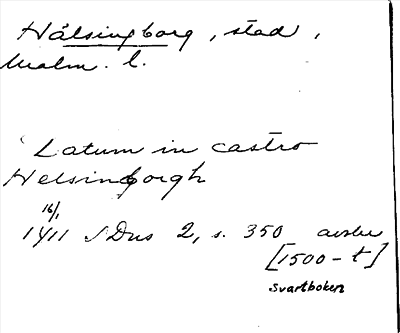 Hälsingborg, stad,
Malm. l.
Latum in castro
Helsingborgh
16/1
1411 SDns 2, s. 350 avskr
[1500-t]
Svartboken